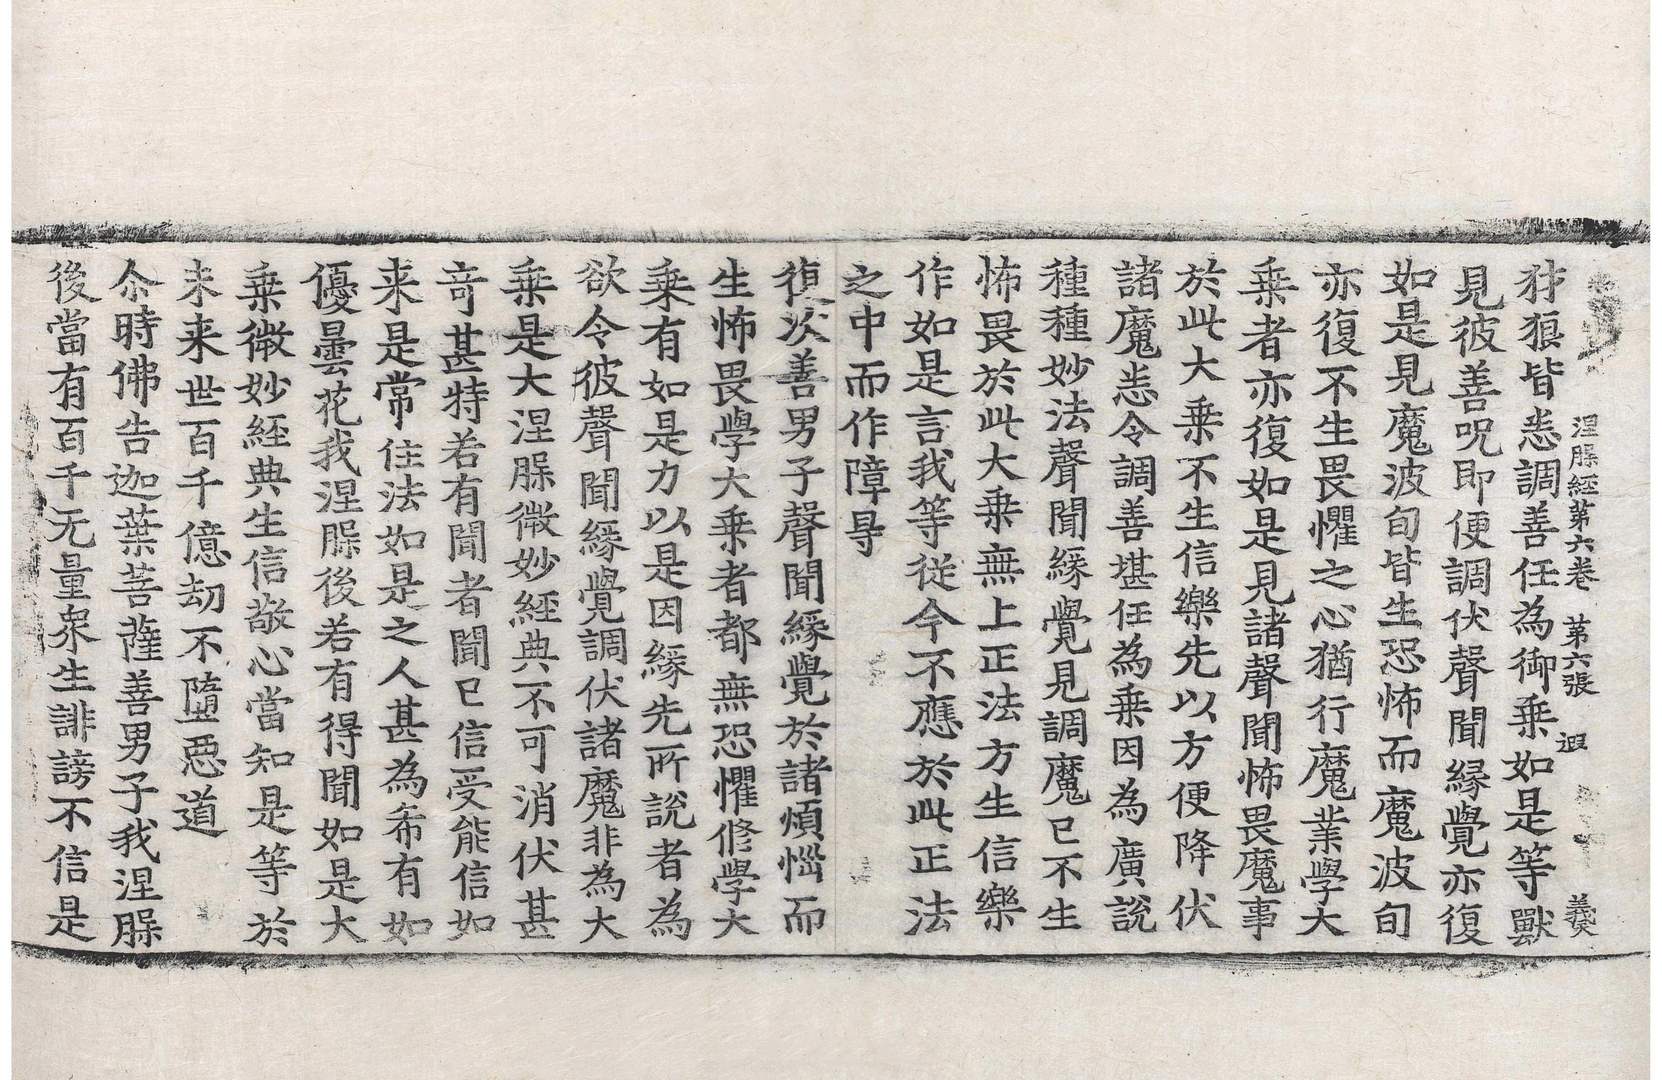 涅槃經第六卷　第六張　遐　義奐
犲狼皆悉調善任為御乗如是等獸
見彼善呪即便調伏聲聞緣覺亦復
如是見魔波旬皆生恐怖而魔波旬
亦復不生畏懼之心猶行魔業學大
乗者亦復如是見諸聲聞怖畏魔事
於此大乗不生信樂先以方便降伏
諸魔悉令調善堪任為乗因為廣說
種種妙法聲聞緣覺見調魔已不生
怖畏於此大乗無上正法方生信樂
作如是言我等從今不應於此正法
之中而作障㝵
復次善男子聲聞緣覺於諸煩惱而
生怖畏學大乗者都無恐懼修學大
乗有如是力以是因緣先所說者為
欲令彼聲聞緣覺調伏諸魔非為大
乗是大涅槃微妙經典不可消伏甚
竒甚特若有聞者聞已信受能信如
来是常住法如是之人甚為希有如
優曇花我涅槃後若有得聞如是大
乗微妙經典生信敬心當知是等於
未来世百千億劫不墮惡道
尒時佛告迦葉菩薩善男子我涅槃
後當有百千无量衆生誹謗不信是